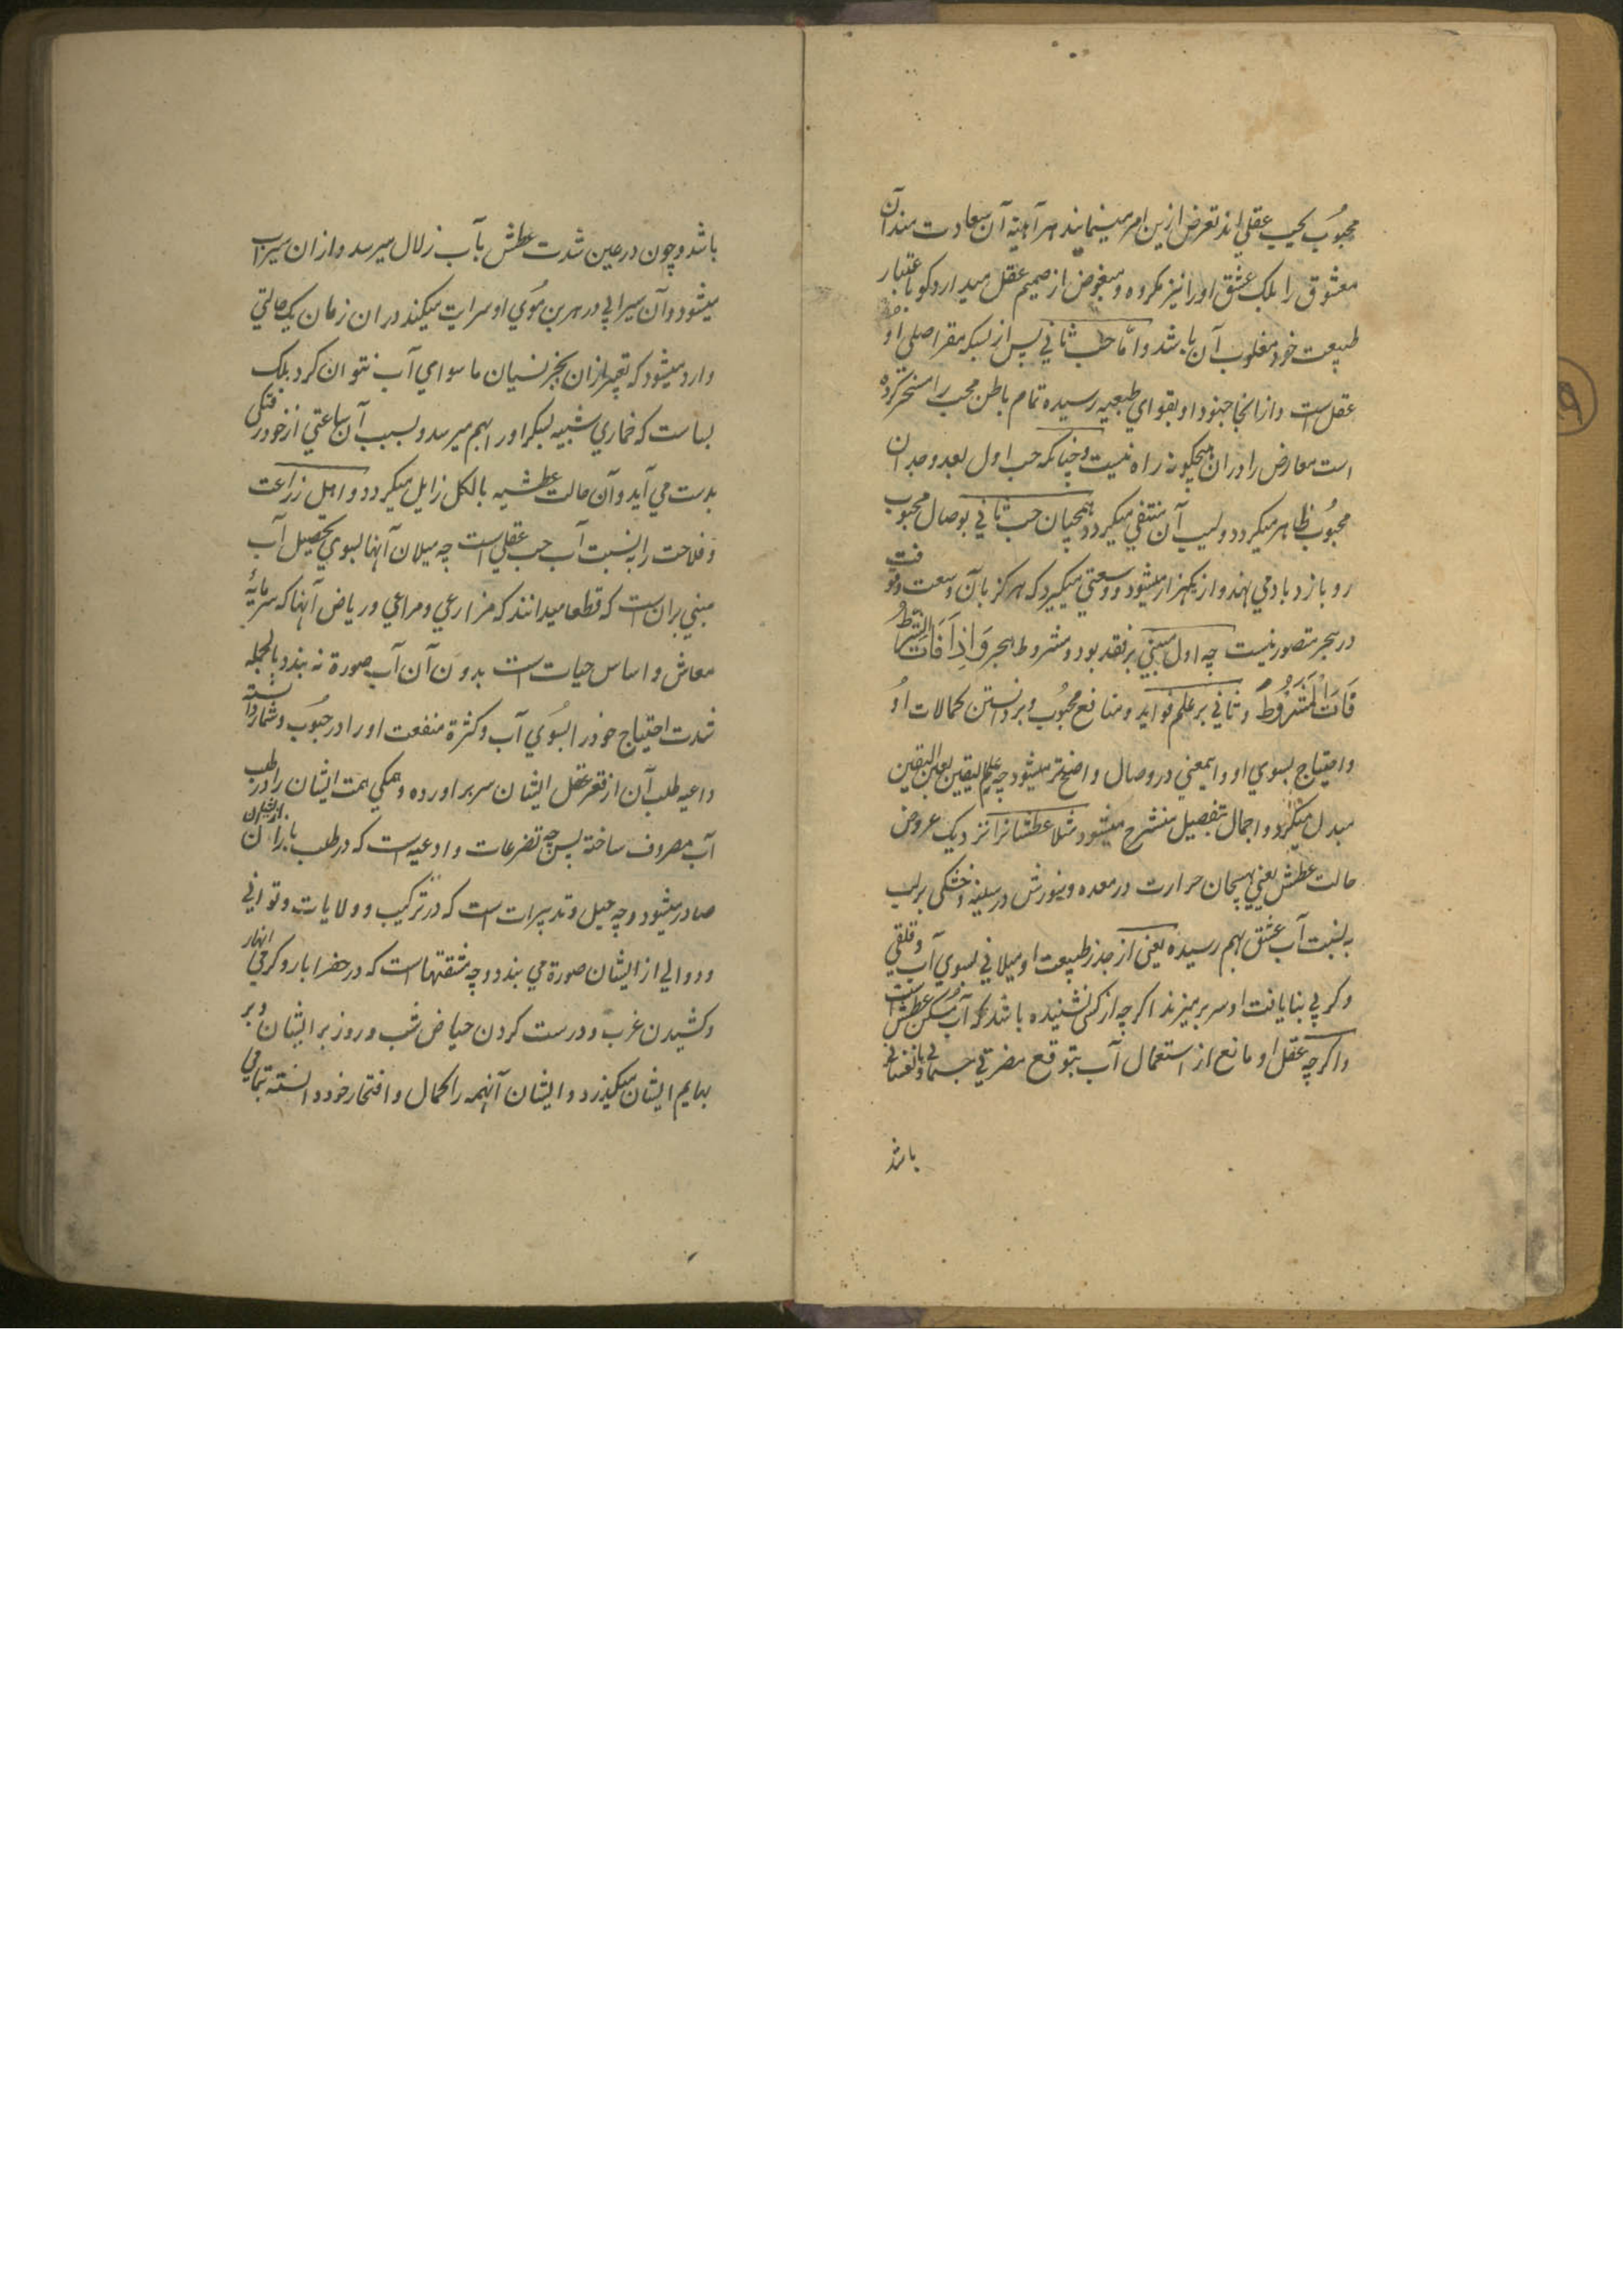 محبوب بحب عقلی اند تعرض ازین امر مینمایند هر آئینه آن سعادت مند آن
معشوق را بلکه عشق او را نیز مکروه و مبغوض از صمیم عقل میدارد کو باعتبار
طبیعت خود مغلوب آن باشد و اما حب ثانی پس از بسکه مقر اصلی او
عقل است و از انجا جنود او بقوای طبعیه رسیده تمام باطن محب را مسخر کرده
است معارض را دران هیچکونه راه نیست و چنانکه حب اول بعد وجدان
محبوب ظاهر میکردد و لیب آن منتفی میکردد همچنان حب ثانی بوصال محبوب
رو بازدیاد می نهد و از یکهزار میشود و وسعتی میکیرد که هرکز بآن وسعت و قوت
در هجر متصور نیست چه اول مبنی بر فقد بود و مشروط بهجر وَاِذَا فَاتَ الشَّرطُ
فَاتَ الْمَشْرُوطُ و ثانی بر علم فواید و منافع محبوب و بر دانستن کمالات او
و احتیاج بسوی او و اینمعنی در وصال واضحتر میشود چه علم الیقین بعین الیقین
مبدل میکردد و اجمال بتفصیل منشرح میشود مثلا عطشانرا نزدیک عروض
حالت عطش یعنی هیجان حرارت در معده و سورش در سینه و خشکی بر لب
به نسبت آب عشق بهم رسیده یعنی از جذر طبیعت او میلانی بسوی آب و قلقی
و کربی بنایافت او سر بر میزند اکرچه از کسی نشنیده باشد که آب مسکن عطش است
و اکرچه عقل او مانع از استعمال آب بتوقع مضرتی جسمانی یا نفسانی
باشد
باشد و چون در عین شدت عطش بآب زلال میرسد و ازان سیراب
میشود و آن سیرابی در هر بن موی او سرایت میکند دران زمان یک حالتی
وارد میشود که تعبیر ازان بجز نسیان ما سوای آب نتوان کرد بلکه
بساست که خماری شبیه بسکر او را بهم میرسد و بسبب آن ساعتی از خود رفتکی
بدست می آید و آن حالت عطشیه بالکل زایل میکردد و اهل زراعت
و فلاحت را به نسبت آب حب عقلی است چه میلان آنها بسوی تحصیل آب
مبنی بران است که قطعا میدانند که مزارعی و مراعی و ریاض آنها که سرمایهٔ
معاش و اساس حیات است بدون آن آب صورة نه بندد بالجمله
شدت احتیاج خود را بسوی آب و کثرة منفعت او را در حبوب و ثمار دانسته
داعیه طلب آن از قعر عقل ایشان سر بر اورده و همکی همت ایشان را در طلب
آب مصروف ساخته پس چه تضرعات و ادعیه است که در طلب باران از ایشان
صادر میشود و چه حیل و تدبیرات است که در ترکیب و ولایات و توانی
و دوالی از ایشان صورة می بندد و چه مشقتهاست که در حفر ابار و کری انهار
و کشیدن غرب و درست کردن حیاض شب و روز بر ایشان و بر
بهایم ایشان میکذرد و ایشان آنهمه را کمال و افتخار خود دانسته بتمامی